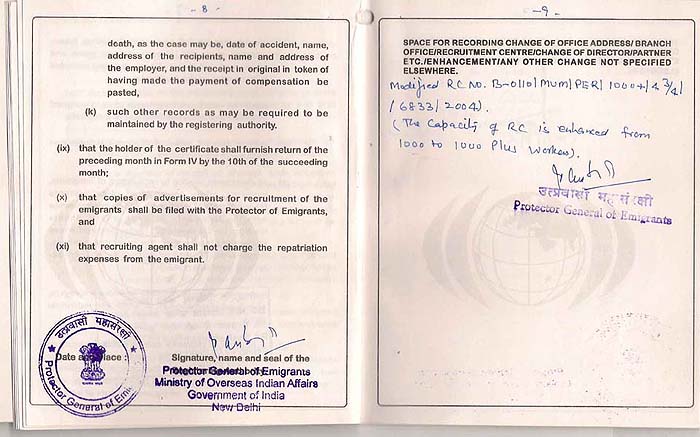 - 8 -
death, as the case may be, date of accident, name,
address of the recipients, name and address of
the employer, and the receipt in original in token of
having made the payment of compensation be
pasted,
(k) such other records as may be required to be
maintained by the registering authority.
(ix) that the holder of the certificate shall furnish return of the
preceding month in Form IV by the 10th of the succeeding
month;
(x) that copies of advertisements for recruitment of the
emigrants shall be filed with the Protector of Emigrants,
and
(xi) that recruiting agent shall not charge the repatriation
expenses from the emigrant.
उत्प्रवासी महासंरक्षी
Protector General of Emig
Date and
Signature, name and seal of the
Protector General of Emigrants
Ministry of Overseas Indian Affairs
Government of India
New Delhi
- 9 -
SPACE FOR RECORDING CHANGE OF OFFICE ADDRESS/ BRANCH
OFFICE/RECRUITMENT CENTRE/CHANGE OF DIRECTOR/PARTNER
ETC./ENHANCEMENT/ANY OTHER CHANGE NOT SPECIFIED
ELSEWHERE.
Modified RC No. B-0110/MUM/PER/1000+/
/6833/2004).
(The Capacity of RC is enhanced from
1000 to 1000 Plus workers).
उत्प्रवासी महासंरक्षी
Protector General of Emigrants